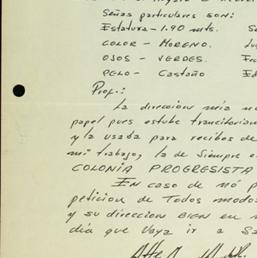 Señas particulares SON:
Estatura - 1.90 mts.
COLOR - MORENO.
OJOS - VERDES.
PELO - Castaño
Prof.:
La direccion mia
papel pues estube transitorian
y la usada para recibos de
mi trabajo, la de Siempre
COLONIA PROGRESISTA
En caso de nó p
peticion de Todos modos
y su direccion BIEN en
dia que Vaya ir a Sa
Atte